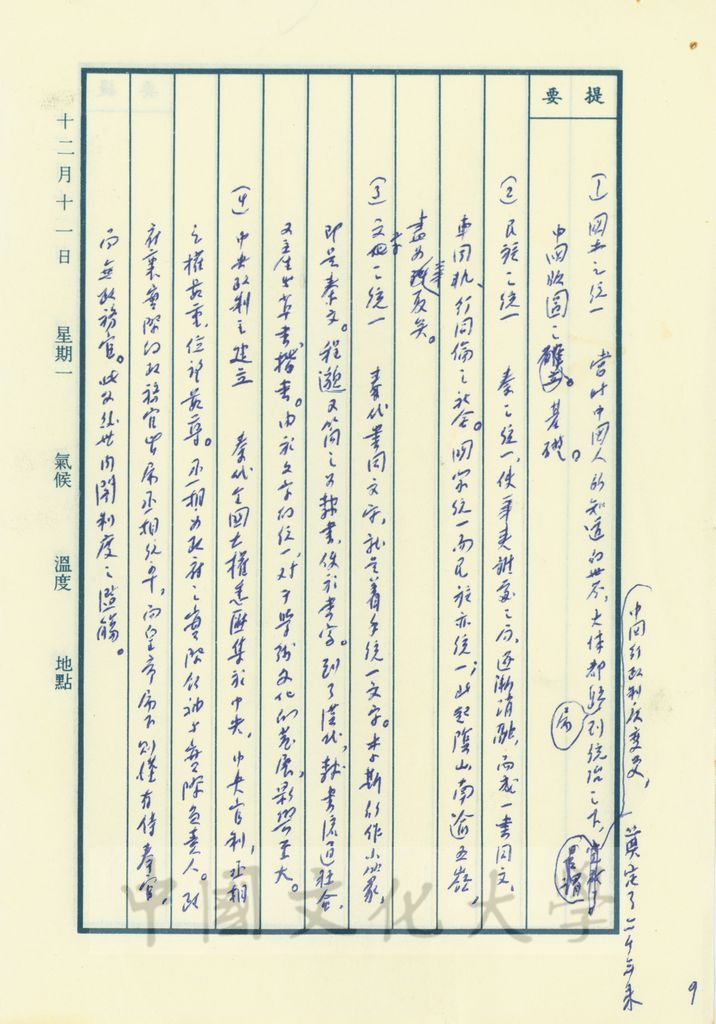 提要
十二月十一日 星期一 氣候 溫度 地點
中國行政制度變更,
奠定了二千年來
(1) 國土之統一 當時中國人所知道的世界,大体都歸到統治之下,
中國版圖之確立。基礎。
(2) 民族之統一 秦之統一,使華夷雜處之局,逐漸消融,而成一書同文,
車同軌,行同倫之社会。國家統一而民族亦統一;北起陰山,南逾五嶺,
盡為華夏矣。
(3) 文字之統一 秦代書同文字,就是着手統一文字。李斯所作小篆,
即是秦文。程邈又簡之為隸書,便於書寫。到了漢代,隸書流通社会,
又產生出草書楷書。由於文字的統一,对于學術文化的發展,影響至大。
(4) 中央政制之建立 秦代全國大權悉匯集於中央,中央官制,丞相
之權最重,位望最尊。丞相為政府之實際領袖与實際負責人。政
府裏實際的政務官皆屬丞相統率,而皇帝屬下則僅有侍奉官,
而無政務官。此為後世內閣制度之濫觴。
9
中國文化大學